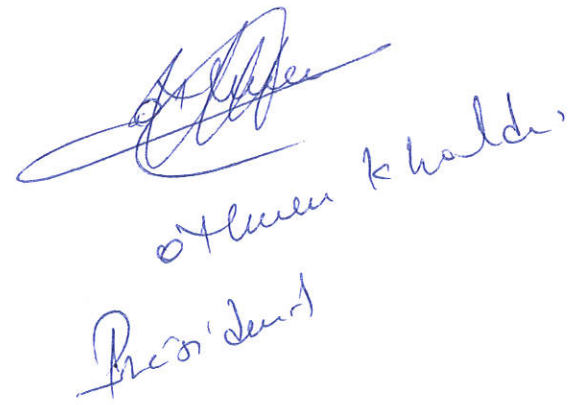 othmen khaldi
Président